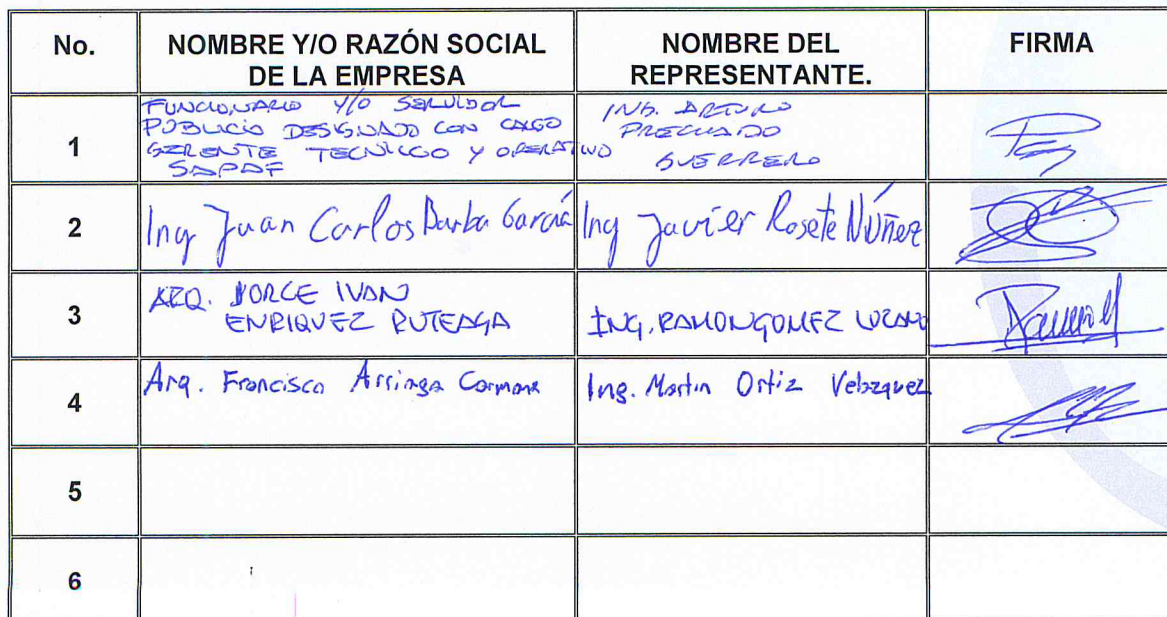 No.
NOMBRE Y/O RAZÓN SOCIAL
DE LA EMPRESA
NOMBRE DEL
REPRESENTANTE.
FIRMA
1
FUNCIONARIO Y/O SERVIDOR
PUBLICO DESIGNADO CON CARGO
GERENTE TECNICO Y OPERATIVO
SAPAF
ING. ARTURO
PRECIADO
GUERRERO
2
Ing Juan Carlos Barba García
Ing Javier Rosete Núñez
3
ARQ. JORGE IVAN
ENRIQUEZ
ING. RAMON GOMEZ LOZANO
4
Arq. Francisco Arriaga Carmona
Ing. Martin Ortiz Velazquez
5
6